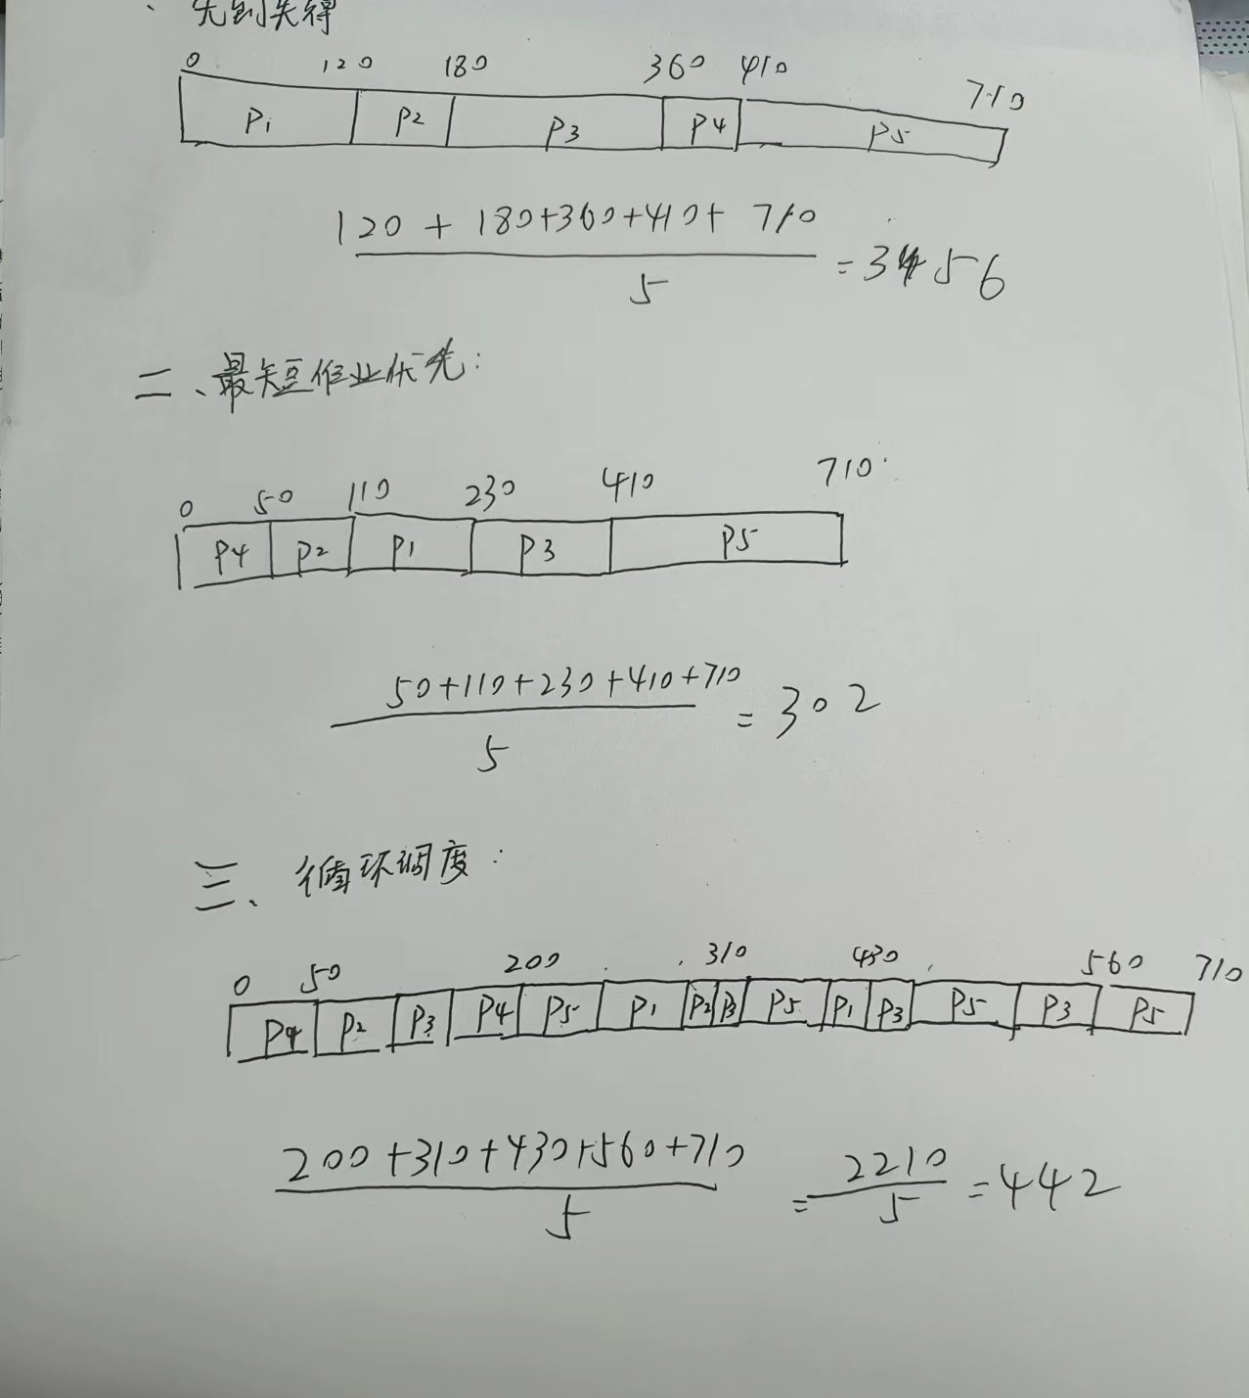 、先到先得
0 120 180 360 410 710
P1 P2 P3 P4 P5
120 + 180+360+410+ 710
5
= 356
二、最短作业优先:
0 50 110 230 410 710
P4 P2 P1 P3 P5
50+110+230+410+710
5
= 302
三、循环调度:
0 50 200 310 430 560 710
P4 P2 P3 P4 P5 P1 P2 P3 P5 P1 P3 P5 P3 P5
200+310+430+560+710
5
= 2210
5
= 442